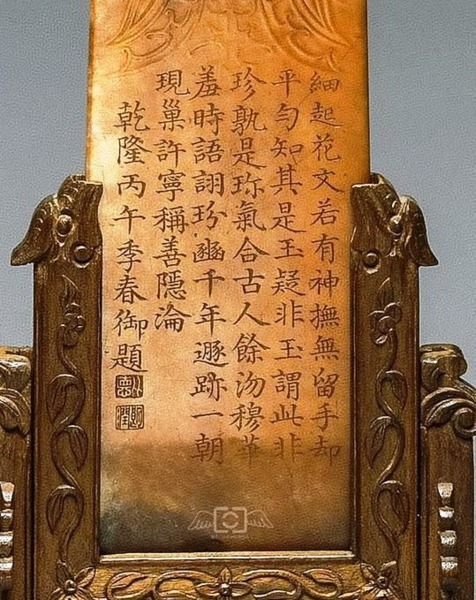 細起花文若有神撫無留手却
平勻知其是玉疑非玉謂此非
珍孰是珎氣合古人餘沕穆華
羞時語詡玢豳千年遯跡一朝
現巢許寧稱善隱淪
乾隆丙午季春御題